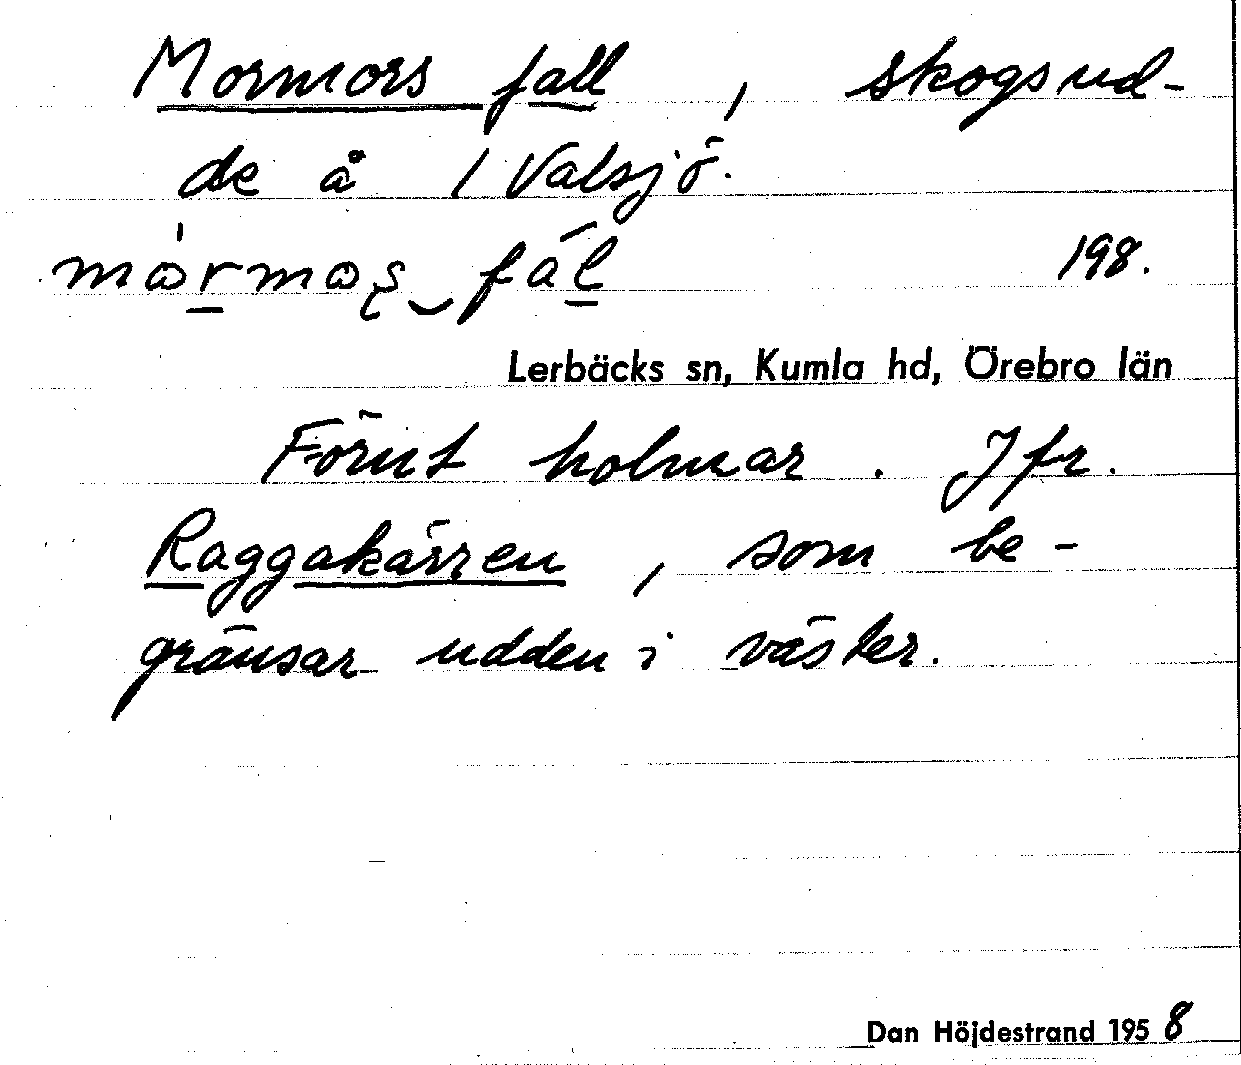 Mormors fall , skogsud-
de å 1 Valsjö.
mormos fàl 198.
Lerbäcks sn, Kumla hd, Örebro län
Förut holmar . Jfr.
Raggakärren , som be-
gränsar udden i väster.
Dan Höjdestrand 1958